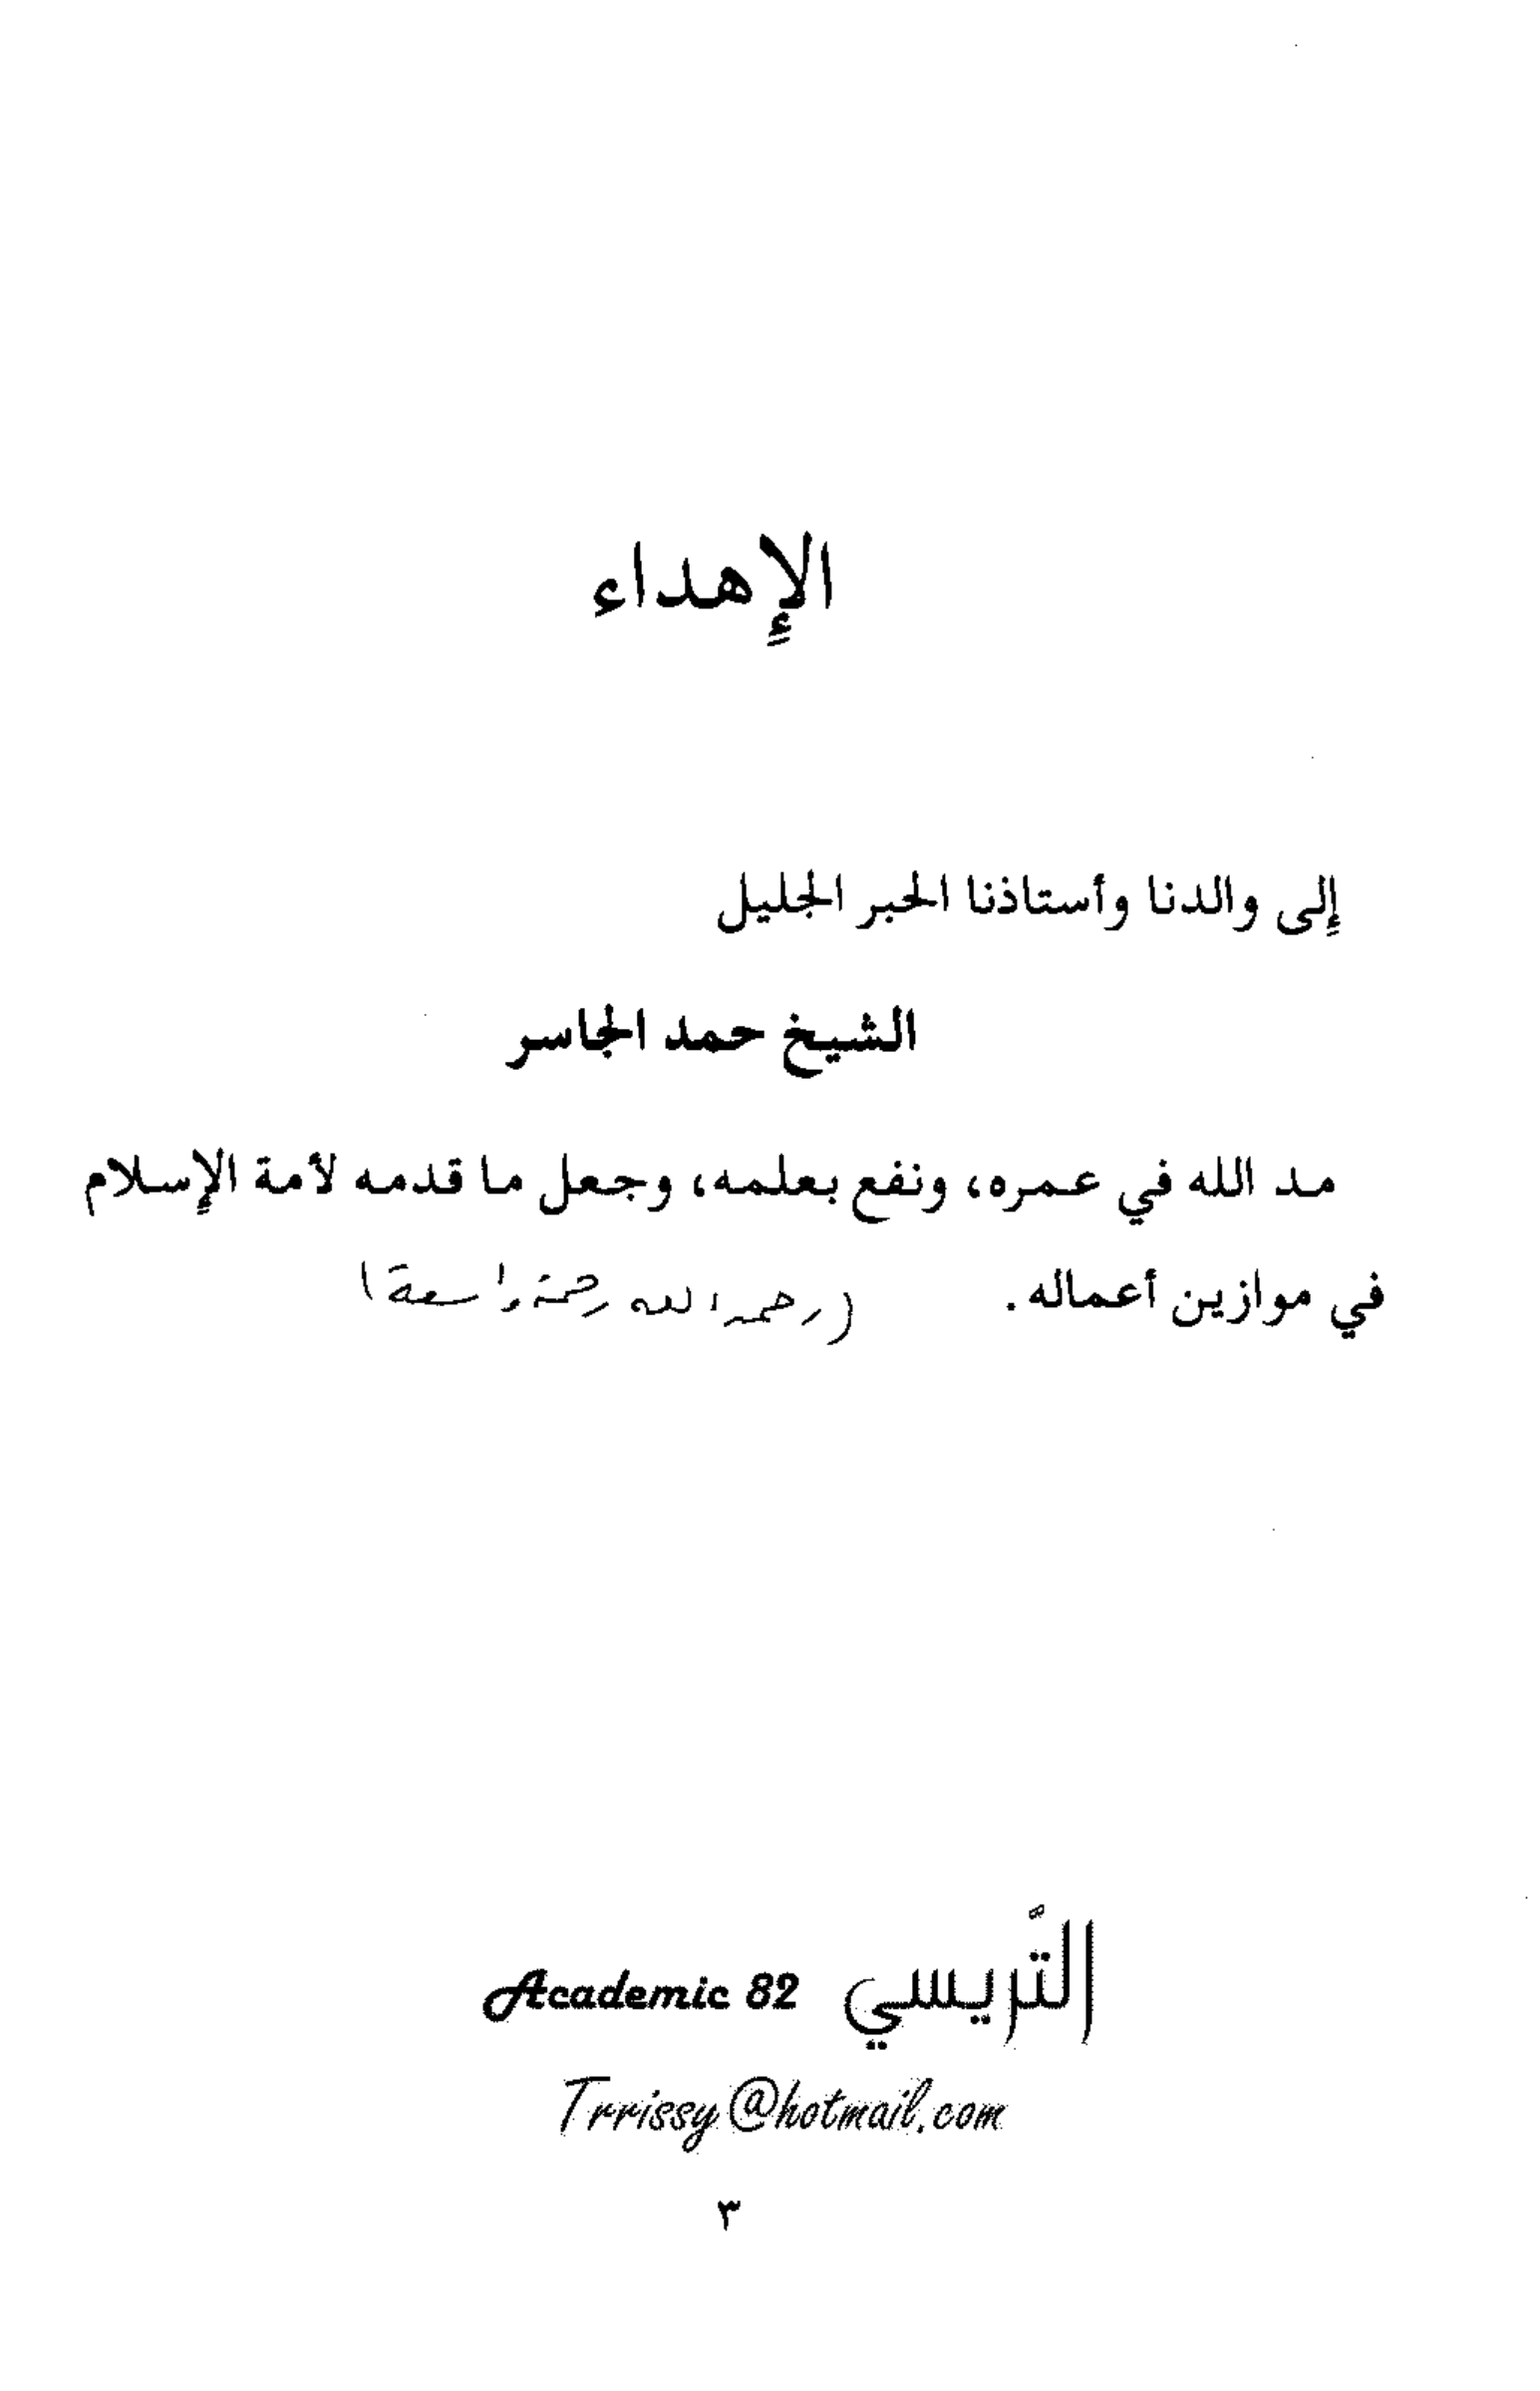 الإهداء
إلى والدنا وأستاذنا الحبر الجليل
الشيخ حمد الجاسر
مد الله في عمره، ونفع بعلمه، وجعل ما قدمه لأمة الإسلام
في موازين أعماله. (رحمه الله رحمة واسعة)
التريسي Academic 82
Trrissy@hotmail.com
٣